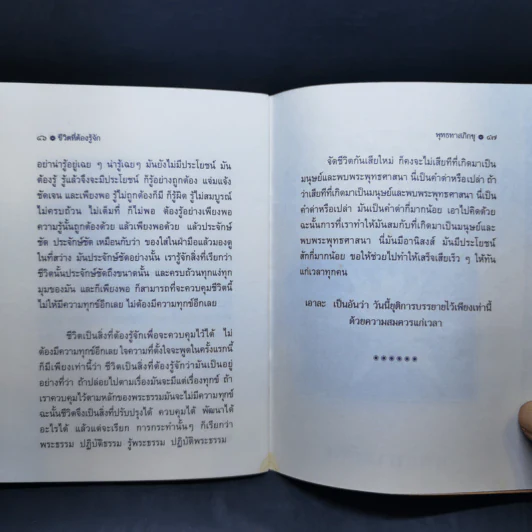 ๔๖ ● ชีวิตที่ต้องรู้จัก
อย่าน่ารู้อยู่เฉย ๆ น่ารู้เฉยๆ มันยังไม่มีประโยชน์ มัน
ต้องรู้ รู้แล้วจึงจะมีประโยชน์ ก็รู้อย่างถูกต้อง แจ่มแจ้ง
ชัดเจน และเพียงพอ รู้ไม่ถูกต้องก็มี ก็รู้ผิด รู้ไม่สมบูรณ์
ไม่ครบถ้วน ไม่เต็มที่ ก็ไม่พอ ต้องรู้อย่างเพียงพอ
ความรู้นั้นถูกต้องด้วย แล้วเพียงพอด้วย แล้วประจักษ์
ชัด ประจักษ์ชัด เหมือนกับว่า ของใสในฝ่ามือแล้วมองดู
ในที่สว่าง มันประจักษ์ชัดอย่างนั้น เรารู้จักสิ่งที่เรียกว่า
ชีวิตนั้นประจักษ์ชัดถึงขนาดนั้น และครบถ้วนทุกแง่ทุก
มุมของมัน และก็เพียงพอ ก็สามารถที่จะควบคุมชีวิตนี้
ไม่ให้มีความทุกข์อีกเลย ไม่ต้องมีความทุกข์อีกเลย
ชีวิตเป็นสิ่งที่ต้องรู้จักเพื่อจะควบคุมไว้ได้ ไม่
ต้องมีความทุกข์อีกเลย ใจความที่ตั้งใจจะพูดในครั้งแรกนี้
ก็มีเพียงเท่านี้ว่า ชีวิตเป็นสิ่งที่ต้องรู้จักว่ามันเป็นอยู่
อย่างที่ว่า ถ้าปล่อยไปตามเรื่องมันจะมีแต่เรื่องทุกข์ ถ้า
เราควบคุมไว้ตามหลักของพระธรรมมันจะไม่มีความทุกข์
ฉะนั้นชีวิตจึงเป็นสิ่งที่ปรับปรุงได้ ควบคุมได้ พัฒนาได้
อะไรได้ แล้วแต่จะเรียก การกระทำนั้นๆ ก็เรียกว่า
พระธรรม ปฏิบัติธรรม รู้พระธรรม ปฏิบัติพระธรรม
พุทธทาสภิกขุ ● ๔๗
จัดชีวิตกันเสียใหม่ ก็คงจะไม่เสียทีที่เกิดมาเป็น
มนุษย์และพบพระพุทธศาสนา นี่เป็นคำด่าหรือเปล่า ถ้า
ว่าเสียทีที่เกิดมาเป็นมนุษย์และพบพระพุทธศาสนา นี่เป็น
คำด่าหรือเปล่า มันเป็นคำด่ากี่มากน้อย เอาไปคิดด้วย
ฉะนั้นการที่เราทำให้มันสมกับที่เกิดมาเป็นมนุษย์และ
พบพระพุทธศาสนา นี่มันมีอานิสงส์ มันมีประโยชน์
สักกี่มากน้อย ขอให้ช่วยไปทำให้เสร็จเสียเร็ว ๆ ให้ทัน
แก่เวลาทุกคน
เอาละ เป็นอันว่า วันนี้ยุติการบรรยายไว้เพียงเท่านี้
ด้วยความสมควรแก่เวลา
******